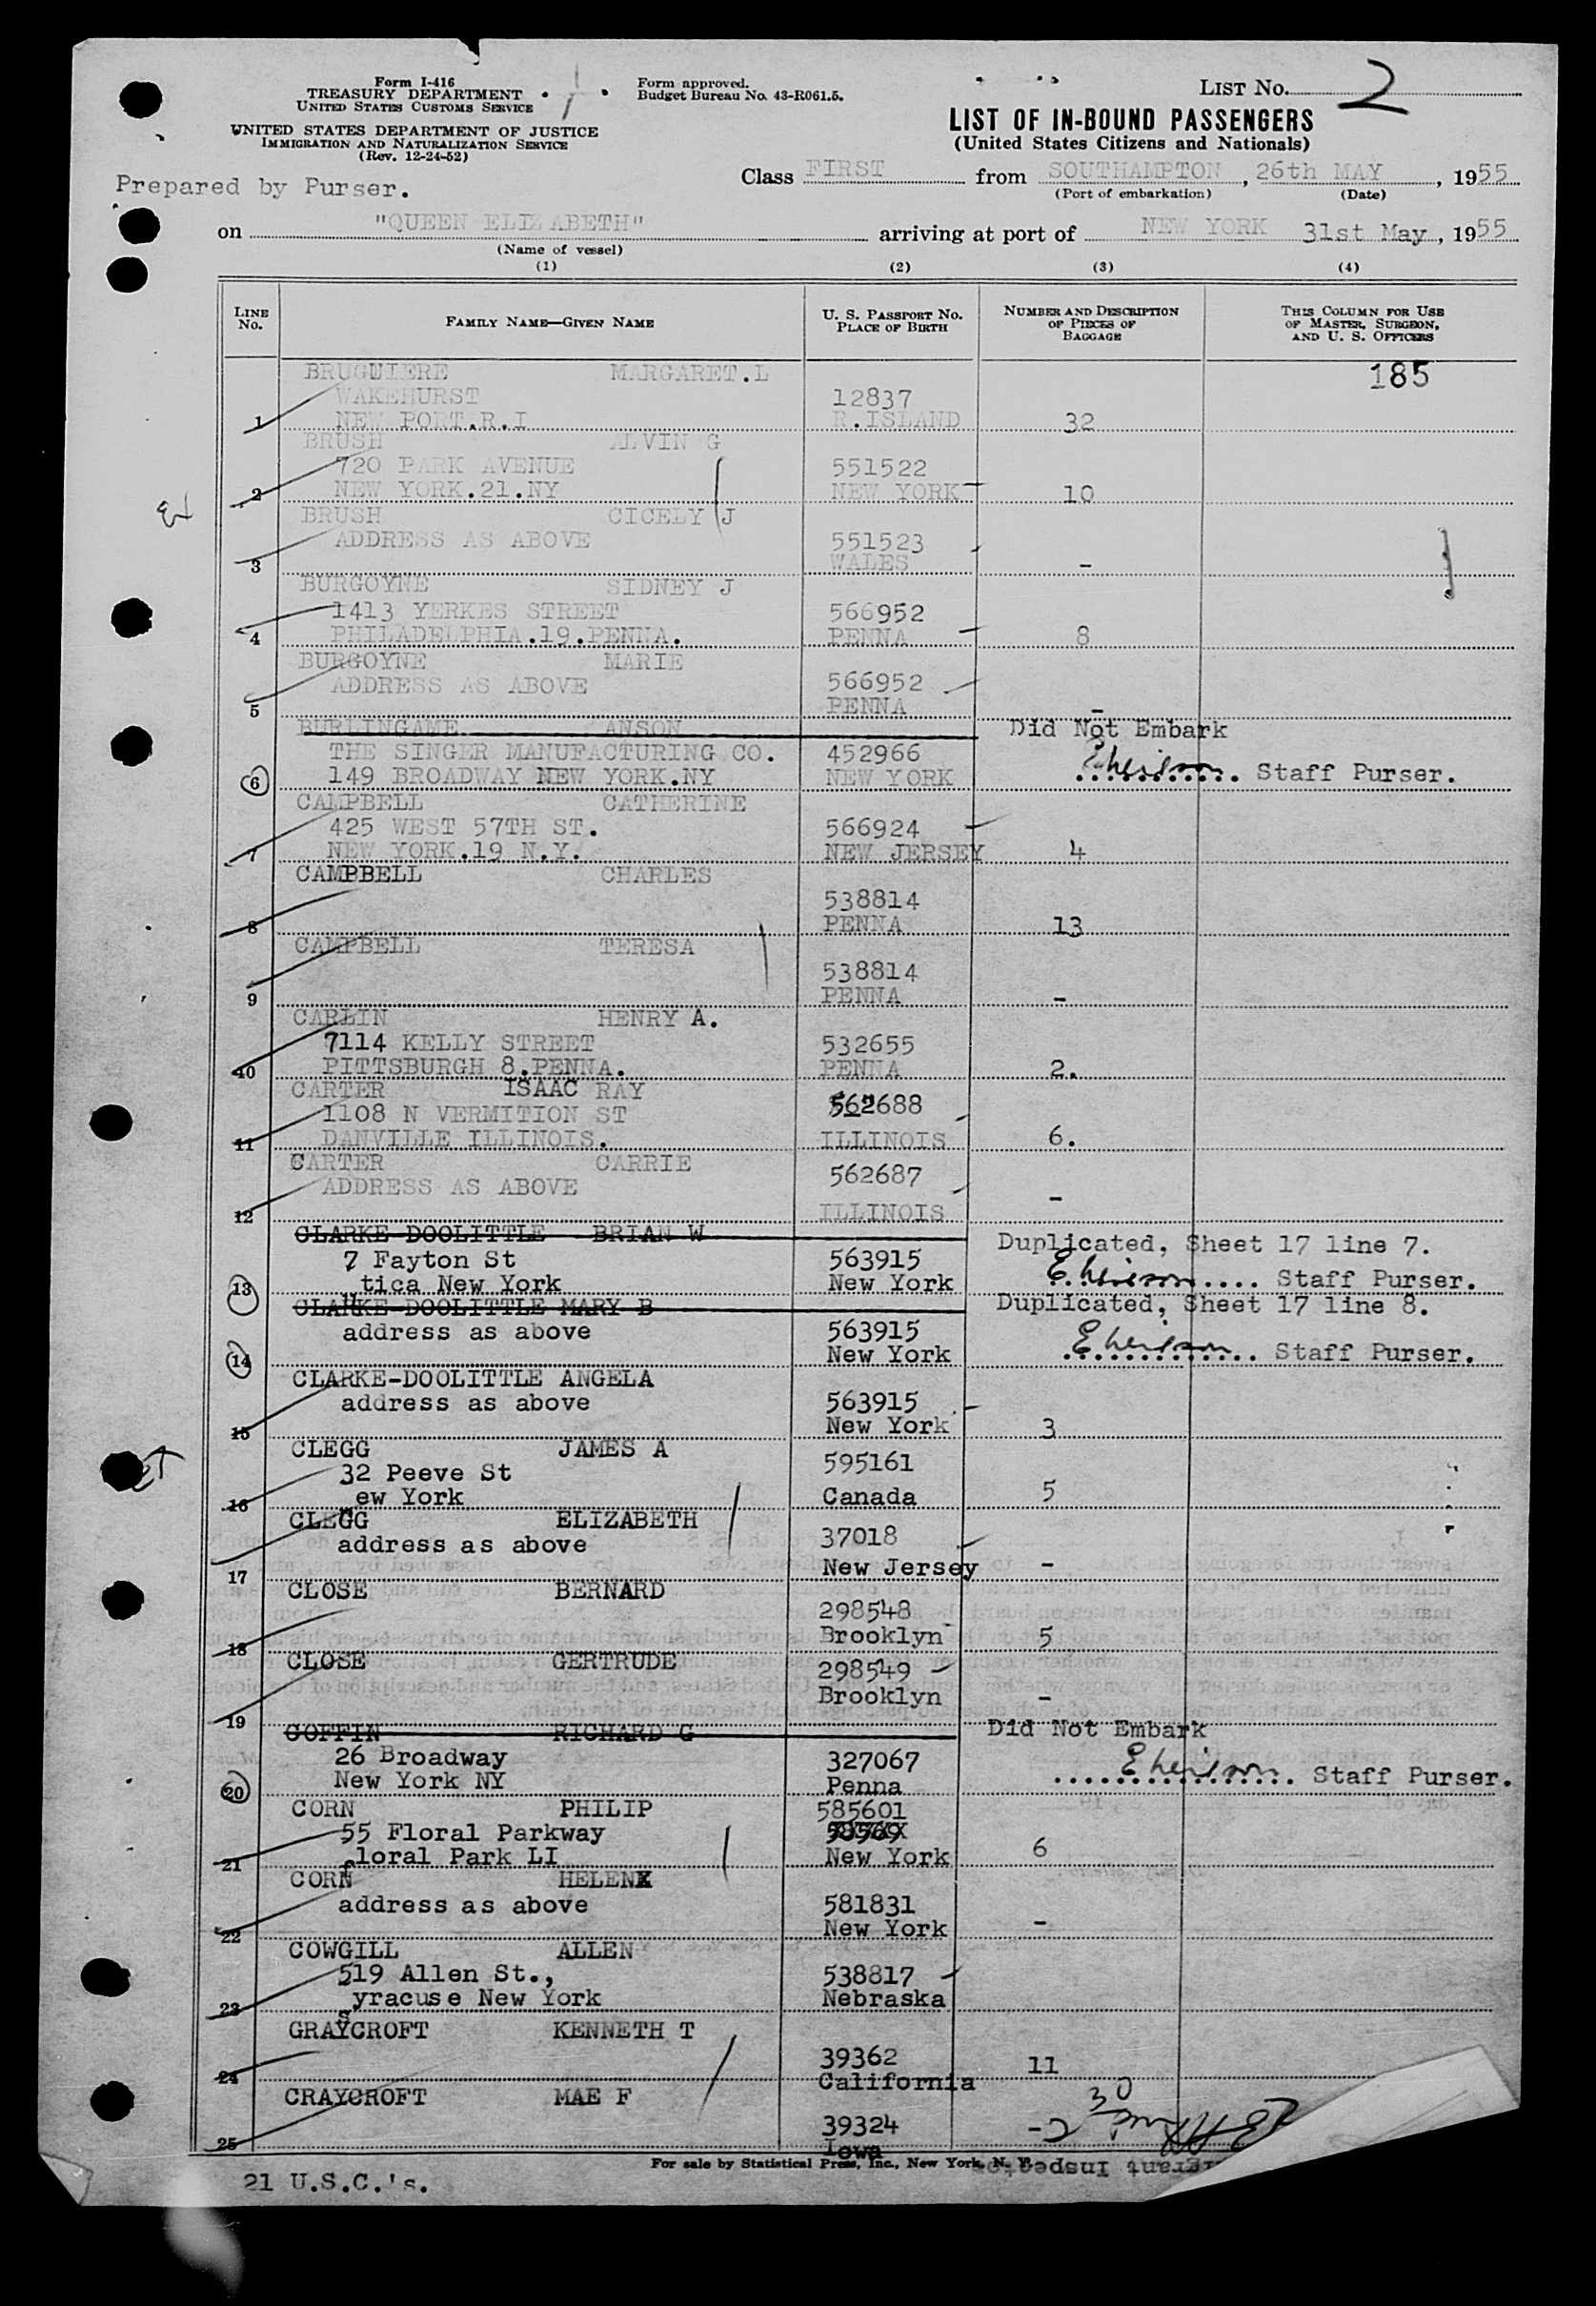 Form I-416
TREASURY DEPARTMENT
UNITED STATES CUSTOMS SERVICE
UNITED STATES DEPARTMENT OF JUSTICE
IMMIGRATION AND NATURALIZATION SERVICE
(Rev. 12-24-52)
Form approved.
Budget Bureau No. 43-R061.5.
LIST No. 2
LIST OF IN-BOUND PASSENGERS
(United States Citizens and Nationals)
Prepared by Purser.
Class FIRST from SOUTHAMPTON, 26th MAY, 1955
(Port of embarkation) (Date)
on "QUEEN ELIZABETH" arriving at port of NEW YORK 31st May, 1955
(Name of vessel)
(1) (2) (3) (4)
LINE No. FAMILY NAME—GIVEN NAME U. S. PASSPORT No. PLACE OF BIRTH NUMBER AND DESCRIPTION OF PIECES OF BAGGAGE THIS COLUMN FOR USE OF MASTER, SURGEON, AND U. S. OFFICERS
185
BRUGUIERE MARGARET.L
WAKEHURST 12837
1 NEW PORT.R.I R.ISLAND 32
BRUSH ALVIN G
720 PARK AVENUE 551522
2 NEW YORK.21.NY NEW YORK 10
BRUSH CICELY J
ADDRESS AS ABOVE 551523
3 WALES -
BURGOYNE SIDNEY J
1413 YERKES STREET 566952
4 PHILADELPHIA.19.PENNA. PENNA 8
BURGOYNE MARIE
ADDRESS AS ABOVE 566952
5 PENNA -
BURLINGAME ANSON Did Not Embark
THE SINGER MANUFACTURING CO. 452966
6 149 BROADWAY NEW YORK.NY NEW YORK Staff Purser.
CAMPBELL CATHERINE
425 WEST 57TH ST. 566924
7 NEW YORK.19 N.Y. NEW JERSEY 4
CAMPBELL CHARLES
538814
8 PENNA 13
CAMPBELL TERESA
538814
9 PENNA -
CARLIN HENRY A.
7114 KELLY STREET 532655
10 PITTSBURGH 8.PENNA. PENNA 2.
CARTER ISAAC RAY
1108 N VERMITION ST 562688
11 DANVILLE ILLINOIS. ILLINOIS 6.
CARTER CARRIE
ADDRESS AS ABOVE 562687
12 ILLINOIS -
CLARKE-DOOLITTLE BRIAN W Duplicated, Sheet 17 line 7.
7 Fayton St 563915
13 utica New York New York Staff Purser.
CLARKE-DOOLITTLE MARY B Duplicated, Sheet 17 line 8.
address as above 563915
14 New York Staff Purser.
CLARKE-DOOLITTLE ANGELA
address as above 563915
15 New York 3
CLEGG JAMES A
32 Peeve St 595161
16 ew York Canada 5
CLEGG ELIZABETH
address as above 37018
17 New Jersey -
CLOSE BERNARD
298548
18 Brooklyn 5
CLOSE GERTRUDE
298549
19 Brooklyn -
COFFIN RICHARD G Did Not Embark
26 Broadway 327067
20 New York NY Penna Staff Purser.
CORN PHILIP 585601
55 Floral Parkway
21 floral Park LI New York 6
CORN HELEN
address as above 581831
22 New York -
COWGILL ALLEN
519 Allen St., 538817
23 syracuse New York Nebraska
GRAYCROFT KENNETH T
39362
24 California 11
CRAYCROFT MAE F
39324
25 Iowa -
30
For sale by Statistical Press, Inc., New York, N. Y.
21 U.S.C.'s.